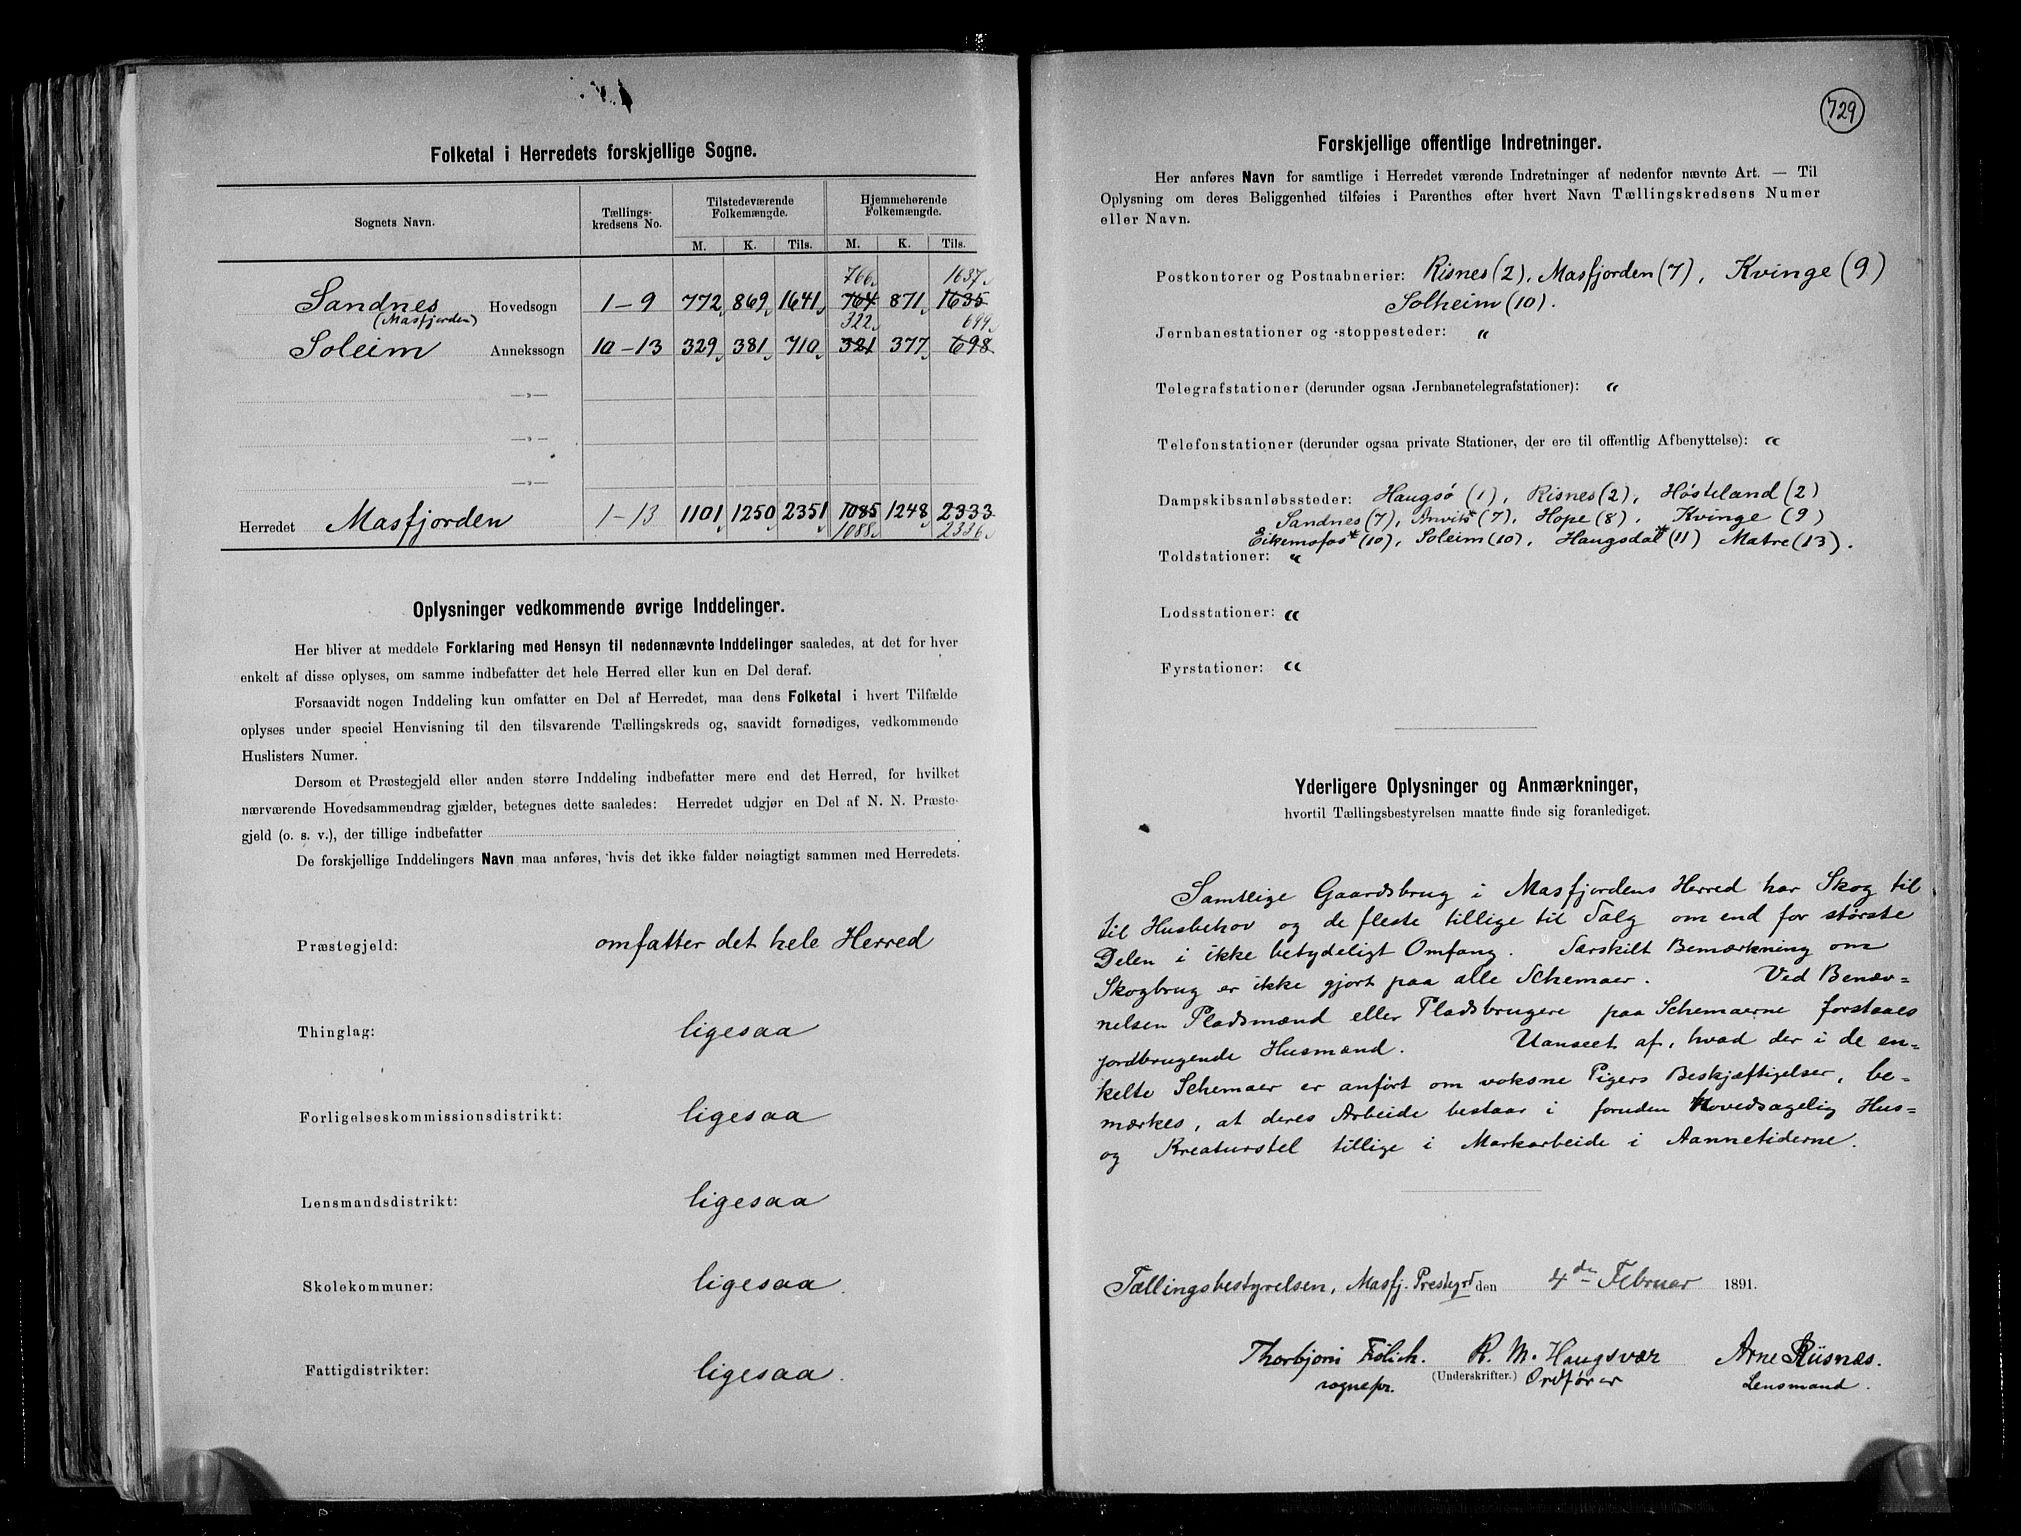 Folketal i Herredets forskjellige Sogne.
Sognets Navn. Tællings-kredsens No. Tilstedeværende Folkemængde. Hjemmehørende Folkemængde.
M. K. Tils. M. K. Tils.
766 1637
Sandnes Hovedsogn 1-9 772 869 1641 764 871 1635
(Masfjorden) 322 699
Soleim Annekssogn 10-13 329 381 710 321 377 698
—»—
—»—
—»—
Herredet Masfjorden 1-13 1101 1250 2351 1085 1248 2333
1088 2336
Oplysninger vedkommende øvrige Inddelinger.
Her bliver at meddele Forklaring med Hensyn til nedennævnte Inddelinger saaledes, at det for hver
enkelt af disse oplyses, om samme indbefatter det hele Herred eller kun en Del deraf.
Forsaavidt nogen Inddeling kun omfatter en Del af Herredet, maa dens Folketal i hvert Tilfælde
oplyses under speciel Henvisning til den tilsvarende Tællingskreds og, saavidt fornødiges, vedkommende
Huslisters Numer.
Dersom et Præstegjeld eller anden større Inddeling indbefatter mere end det Herred, for hvilket
nærværende Hovedsammendrag gjælder, betegnes dette saaledes: Herredet udgjør en Del af N. N. Præste-
gjeld (o. s. v.), der tillige indbefatter
De forskjellige Inddelingers Navn maa anføres, hvis det ikke falder nøiagtigt sammen med Herredets.
Præstegjeld: omfatter det hele Herred
Thinglag: ligesaa
Forligelseskommissionsdistrikt: ligesaa
Lensmandsdistrikt: ligesaa
Skolekommuner: ligesaa.
Fattigdistrikter: ligesaa.
729
Forskjellige offentlige Indretninger.
Her anføres Navn for samtlige i Herredet værende Indretninger af nedenfor nævnte Art. — Til
Oplysning om deres Beliggenhed tilføies i Parenthes efter hvert Navn Tællingskredsens Numer
eller Navn.
Postkontorer og Postaabnerier: Risnes (2), Masfjorden (7), Kvinge (9)
Solheim (10).
Jernbanestationer og -stoppesteder: "
Telegrafstationer (derunder ogsaa Jernbanetelegrafstationer): "
Telefonstationer (derunder ogsaa private Stationer, der ere til offentlig Afbenyttelse): "
Dampskibsanløbssteder: Haugsø (1), Risnes (2), Høsteland (2)
Sandnes (7), Anvik* (7), Hope (8), Kvinge (9)
Eikemofos* (10), Soleim (10), Haugsdal* (11) Matre (13).
Toldstationer: "
Lodsstationer: "
Fyrstationer: "
Yderligere Oplysninger og Anmærkninger,
hvortil Tællingsbestyrelsen maatte finde sig foranlediget.
Samtlige Gaardsbrug i Masfjordens Herred har Skog til
til Husbehov og de fleste tillige til Salg om end for største
Delen i ikke betydeligt Omfang. Særskilt Bemærkning om
Skogbrug er ikke gjort paa alle Schemaer. Ved Benæv-
nelsen Pladsmænd eller Pladsbrugere paa Schemaerne forstaaes
jordbrugende Husmænd. Uanseet af, hvad der i de en-
kelte Schemaer er anført om voksne Pigers Beskjæftigelser, be-
mærkes, at deres Arbeide bestaar i foruden hovedsagelig Hus-
og Kreaturstel tillige i Markarbeide i Aannetiderne.
Tællingsbestyrelsen, Masfj. Prestegrd den 4de Februar 1891.
Thorbjørn Frölich. R. M. Haugsvær Arne Riisnæs.
sognepr. (Underskrifter.) Ordfører Lensmand.